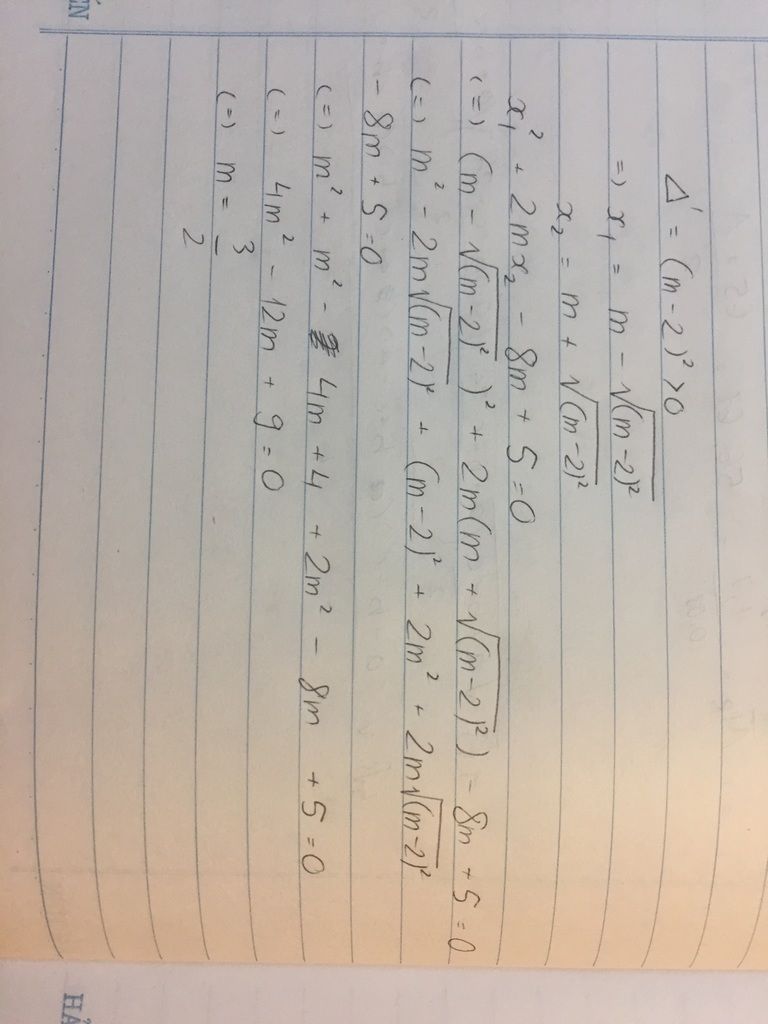 Δ' = (m-2)² > 0
=> x₁ = m - √(m-2)²
x₂ = m + √(m-2)²
x₁² + 2mx₂ - 8m + 5 = 0
(=) (m - √(m-2)²)² + 2m(m + √(m-2)²) - 8m + 5 = 0
(=) m² - 2m√(m-2)² + (m-2)² + 2m² + 2m√(m-2)²
- 8m + 5 = 0
(=) m² + m² - 4m + 4 + 2m² - 8m + 5 = 0
(=) 4m² - 12m + 9 = 0
(=) m = 3/2